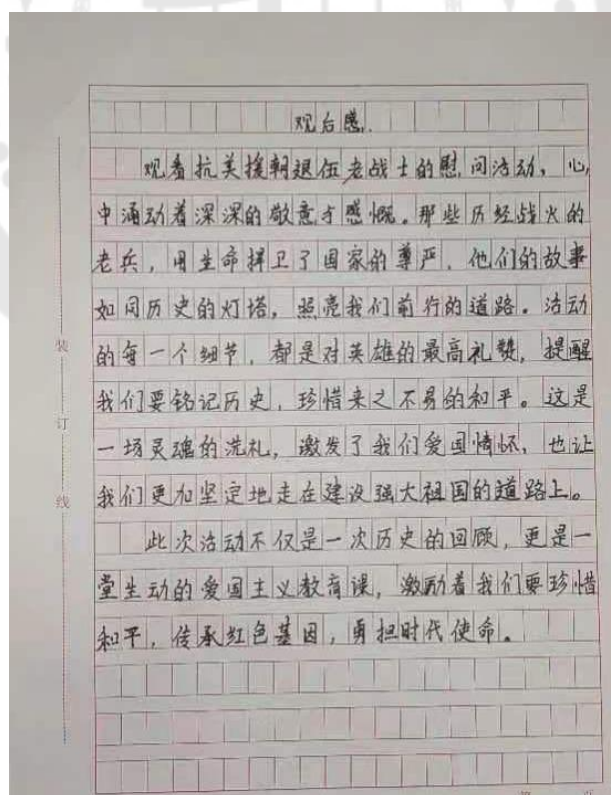 观后感.
观看抗美援朝退伍老战士的慰问活动，心
中涌动着深深的敬意与感慨。那些历经战火的
老兵，用生命捍卫了国家的尊严，他们的故事
如同历史的灯塔，照亮我们前行的道路。活动
的每一个细节，都是对英雄的最高礼赞，提醒
我们要铭记历史，珍惜来之不易的和平。这是
一场灵魂的洗礼，激发了我们爱国情怀，也让
我们更加坚定地走在建设强大祖国的道路上。
此次活动不仅是一次历史的回顾，更是一
堂生动的爱国主义教育课，激励着我们要珍惜
和平，传承红色基因，勇担时代使命。
装
订
线